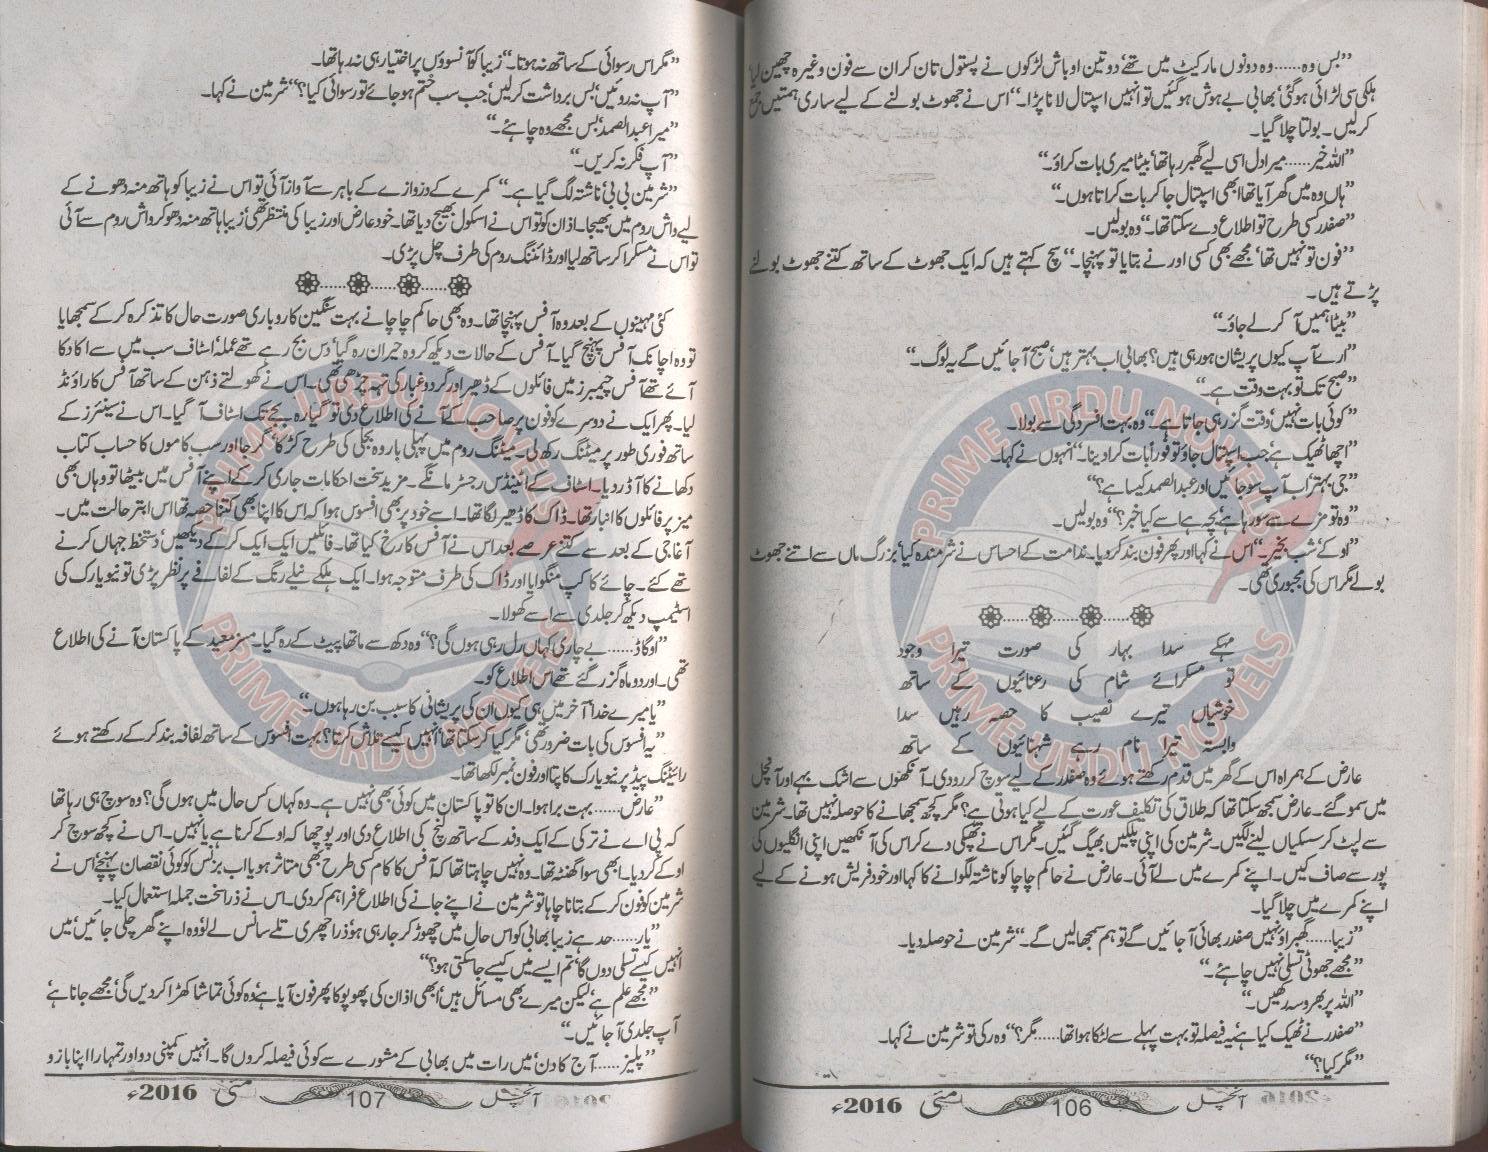 ”بس وہ......وہ دونوں مارکیٹ میں تھے‘ دو تین اوباش لڑکوں نے پستول تان کر ان سے فون وغیرہ چھین لیا‘
ہلکی سی لڑائی ہوگئی‘ بھابی بے ہوش ہوگئیں تو انہیں اسپتال لانا پڑا۔“ اس نے جھوٹ بولنے کے لیے ساری ہمتیں جمع
کرلیں۔ بولتا چلا گیا۔
”اللہ خیر......میرا دل اسی لیے گھبرا رہا تھا‘ بیٹا میری بات کراؤ۔“
”ہاں وہ میں گھر آیا تھا ابھی اسپتال جا کر بات کراتا ہوں۔“
”صفدر کسی طرح تو اطلاع دے سکتا تھا۔“ وہ بولیں۔
”فون تو نہیں تھا‘ مجھے بھی کسی اور نے بتایا تو پہنچا۔“ سچ کہتے ہیں کہ ایک جھوٹ کے ساتھ کتنے جھوٹ بولنے
پڑتے ہیں۔
”بیٹا ہمیں آ کر لے جاؤ۔“
”ارے آپ کیوں پریشان ہو رہی ہیں؟ بھابی اب بہتر ہیں‘ صبح آجائیں گے یہ لوگ۔“
”صبح تک تو بہت وقت ہے۔“
”کوئی بات نہیں‘ وقت گزر ہی جاتا ہے۔“ وہ بہت افسردگی سے بولا۔
”اچھا ٹھیک ہے جب اسپتال جاؤ تو فوراً بات کرا دینا۔“ انہوں نے کہا۔
”جی بہتر اب آپ سوجائیں اور عبدالصمد کیسا ہے؟“
”وہ تو مزے سے سو رہا ہے‘ بچہ ہے اسے کیا خبر؟“ وہ بولیں۔
”اوکے‘ شب بخیر۔“ اس نے کہا اور پھر فون بند کردیا۔ ندامت کے احساس نے شرمندہ کیا‘ بزرگ ماں سے اتنے جھوٹ
بولے مگر اس کی مجبوری تھی۔
مہکے سدا بہار کی صورت تیرا وجود
تو مسکرائے شام کی رعنائیوں کے ساتھ
خوشیاں تیرے نصیب کا حصہ رہیں سدا
وابستہ تیرا نام رہے شہنائیوں کے ساتھ
عارض کے ہمراہ اس کے گھر میں قدم رکھتے ہوئے وہ صفدر کے لیے سوچ کر رو دی۔ آنکھوں سے اشک بہے اور آنچل
میں سمو گئے۔ عارض سمجھ سکتا تھا کہ طلاق کی تکلیف عورت کے لیے کیا ہوتی ہے؟ مگر کچھ سمجھانے کا حوصلہ نہیں تھا۔ شرمین
سے لپٹ کر سسکیاں لینے لگیں۔ شرمین کی اپنی پلکیں بھیگ گئیں۔ مگر اس نے تھپکی دے کر اس کی آنکھیں اپنی انگلیوں کی
پور سے صاف کیں۔ اپنے کمرے میں لے آئی۔ عارض نے حاکم چاچا کو ناشتہ لگوانے کا کہا اور خود فریش ہونے کے لیے
اپنے کمرے میں چلا گیا۔
”زیبا......گھبراؤ نہیں صفدر بھائی آجائیں گے تو ہم سمجھا لیں گے۔“ شرمین نے حوصلہ دیا۔
”مجھے جھوٹی تسلی نہیں چاہئے۔“
”اللہ پر بھروسہ رکھیں۔“
”صفدر نے ٹھیک کیا ہے‘ یہ فیصلہ تو بہت پہلے سے لٹکا ہوا تھا......مگر؟“ وہ رکی تو شرمین نے کہا۔
”مگر کیا؟“
آنچل 106 مئی 2016ء
”مگر اس رسوائی کے ساتھ نہ ہوتا۔“ زیبا کو آنسوؤں پر اختیار ہی نہ رہا تھا۔
”آپ نہ روئیں‘ بس برداشت کرلیں‘ جب سب ختم ہوجائے تو رسوائی کیا؟“ شرمین نے کہا۔
”میرا عبدالصمد‘ بس مجھے وہ چاہئے۔“
”آپ فکر نہ کریں۔“
”شرمین بی بی‘ ناشتہ لگ گیا ہے۔“ کمرے کے دروازے کے باہر سے آواز آئی تو اس نے زیبا کو ہاتھ منہ دھونے کے
لیے واش روم میں بھیجا۔ اذان کو تو اس نے اسکول بھیج دیا تھا۔ خود عارض اور زیبا کی منتظر تھی‘ زیبا ہاتھ منہ دھو کر واش روم سے آئی
تو اس نے مسکرا کر ساتھ لیا اور ڈائننگ روم کی طرف چل پڑی۔
کئی مہینوں کے بعد وہ آفس پہنچا تھا۔ وہ بھی حاکم چاچا نے بہت سنگین کاروباری صورت حال کا تذکرہ کرکے سمجھایا
تو وہ اچانک آفس پہنچ گیا۔ آفس کے حالات دیکھ کر وہ حیران رہ گیا‘ دس بج رہے تھے عملہ‘ اسٹاف سب میں سے اکا دکا
آئے تھے‘ آفس چیمبرز میں فائلوں کے ڈھیر اور گرد و غبار کی تہہ چڑھی تھی۔ اس نے کھولتے ذہن کے ساتھ آفس کا راؤنڈ
لیا۔ پھر ایک نے دوسرے کو فون پر صاحب کے آنے کی اطلاع دی تو گیارہ بجے تک اسٹاف آگیا۔ اس نے سینئرز کے
ساتھ فوری طور پر میٹنگ رکھ لی۔ میٹنگ روم میں پہلی بار وہ بجلی کی طرح کڑکا گرجا اور سب کاموں کا حساب کتاب
دکھانے کا آرڈر دیا۔ اسٹاف کے اٹینڈنس رجسٹر مانگے۔ مزید سخت احکامات جاری کرکے اپنے آفس میں بیٹھا تو وہاں بھی
میز پر فائلوں کا انبار تھا۔ ڈاک کا ڈھیر لگا تھا۔ اسے خود پر بھی افسوس ہوا کہ اس کا اپنا بھی کتنا حصہ تھا اس ابتر حالت میں۔
آغا جی کے بعد سے کتنے عرصے بعد اس نے آفس کا رخ کیا تھا۔ فائلیں ایک ایک کرکے دیکھیں‘ دستخط جہاں کرنے
تھے کئے۔ چائے کا کپ منگوایا اور ڈاک کی طرف متوجہ ہوا۔ ایک ہلکے نیلے رنگ کے لفافے پر نظر پڑی تو نیویارک کی
اسٹیمپ دیکھ کر جلدی سے اسے کھولا۔
”اوگاڈ......بے چاری کہاں رل رہی ہوں گی؟“ وہ دکھ سے ماتھا پیٹ کے رہ گیا۔ مسز معید کے پاکستان آنے کی اطلاع
تھی۔ اور دو ماہ گزر گئے تھے اس اطلاع کو۔
”یا میرے خدا‘ آخر میں ہی کیوں ان کی پریشانی کا سبب بن رہا ہوں۔“
”یہ افسوس کی بات ضرور تھی‘ مگر کیا کر سکتا تھا‘ انہیں کیسے تلاش کرتا؟ بہت افسوس کے ساتھ لفافہ بند کرکے رکھتے ہوئے
رائیٹنگ پیڈ پر نیویارک کا پتا اور فون نمبر لکھا تھا۔
”عارض......بہت برا ہوا۔ ان کا تو پاکستان میں کوئی بھی نہیں ہے۔ وہ کہاں کس حال میں ہوں گی؟ وہ سوچ ہی رہا تھا
کہ پی اے نے ترکی کے ایک وفد کے ساتھ لنچ کی اطلاع دی اور پوچھا کہ اوکے کرنا ہے یا نہیں۔ اس نے کچھ سوچ کر
اوکے کردیا۔ ابھی سوا گھنٹہ تھا۔ وہ نہیں چاہتا تھا کہ آفس کا کام کسی طرح بھی متاثر ہو یا اب بزنس کو کوئی نقصان پہنچے‘ اس نے
شرمین کو فون کرکے بتانا چاہا تو شرمین نے اپنے جانے کی اطلاع فراہم کردی۔ اس نے ذرا سخت جملہ استعمال کیا۔
”یار......حد ہے زیبا بھابی کو اس حال میں چھوڑ کر جا رہی ہو‘ ذرا چھری تلے سانس لے لو‘ وہ اپنے گھر چلی جائیں‘ میں
انہیں کیسے تسلی دوں گا‘ تم ایسے میں کیسے جا سکتی ہو؟“
”مجھے علم ہے‘ لیکن میرے بھی مسائل ہیں‘ ابھی اذان کی پھوپو کا پھر فون آیا ہے‘ وہ کوئی تماشا کھڑا کردیں گی‘ مجھے جانا ہے
آپ جلدی آجائیں۔“
”پلیز......آج کا دن‘ میں رات میں بھابی کے مشورے سے کوئی فیصلہ کروں گا۔ انہیں کمپنی دو اور تمہارا اپنا بازو
آنچل 107 مئی 2016ء
PRIME URDU NOVELS
PRIME URDU NOVELS
PRIME URDU NOVELS
PRIME URDU NOVELS